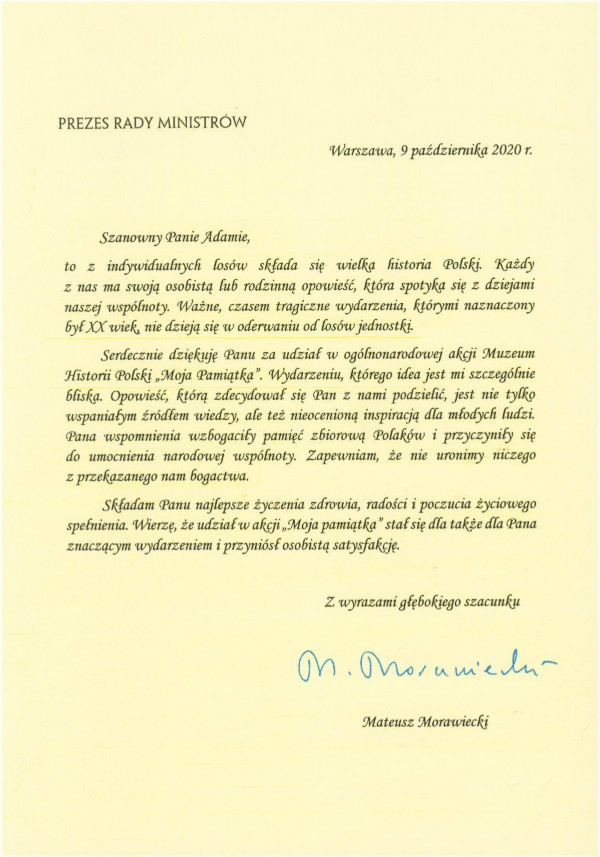 PREZES RADY MINISTRÓW
Warszawa, 9 października 2020 r.
Szanowny Panie Adamie,
to z indywidualnych losów składa się wielka historia Polski. Każdy
z nas ma swoją osobistą lub rodzinną opowieść, która spotyka się z dziejami
naszej wspólnoty. Ważne, czasem tragiczne wydarzenia, którymi naznaczony
był XX wiek, nie dzieją się w oderwaniu od losów jednostki.
Serdecznie dziękuję Panu za udział w ogólnonarodowej akcji Muzeum
Historii Polski „Moja Pamiątka”. Wydarzeniu, którego idea jest mi szczególnie
bliska. Opowieść, którą zdecydował się Pan z nami podzielić, jest nie tylko
wspaniałym źródłem wiedzy, ale też nieocenioną inspiracją dla młodych ludzi.
Pana wspomnienia wzbogaciły pamięć zbiorową Polaków i przyczyniły się
do umocnienia narodowej wspólnoty. Zapewniam, że nie uronimy niczego
z przekazanego nam bogactwa.
Składam Panu najlepsze życzenia zdrowia, radości i poczucia życiowego
spełnienia. Wierzę, że udział w akcji „Moja pamiątka” stał się dla także dla Pana
znaczącym wydarzeniem i przyniósł osobistą satysfakcję.
Z wyrazami głębokiego szacunku
M. Morawiecki
Mateusz Morawiecki